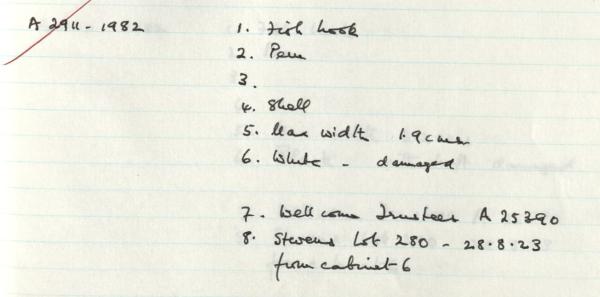 A 2911-1982
1. Fish hook
2. Peru
3.
4. Shell
5. Max width 1.9cms
6. White - damaged
7. Wellcome Trustees A 25390
8. Stevens Lot 280 - 28.8.23
from cabinet 6